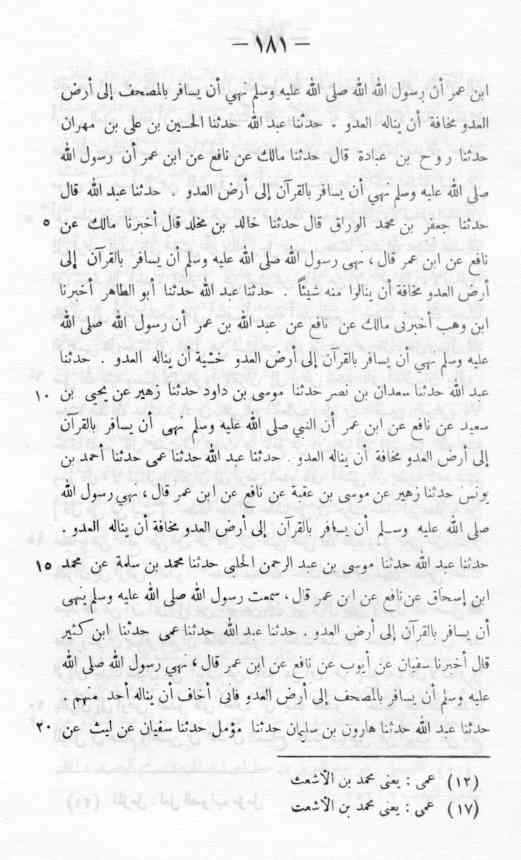 — ١٨١ —
ابن عمر أن رسول الله الله صلى الله عليه وسلم نهي أن يسافر بالمصحف إلى أرض
العدو مخافة أن يناله العدو . حدثنا عبد الله حدثنا الحسين بن على بن مهران
حدثنا روح بن عبادة قال حدثنا مالك عن نافع عن ابن عمر أن رسول الله
صلى الله عليه وسلم نهي أن يسافر بالقرآن إلى أرض العدو . حدثنا عبد الله قال
حدثنا جعفر بن محمد الوراق قال حدثنا خالد بن مخلد قال أخبرنا مالك عن ٥
نافع عن ابن عمر قال ، نهى رسول الله صلى الله عليه وسلم أن يسافر بالقرآن إلى
أرض العدو مخافة أن ينالوا منه شيئاً . حدثنا عبد الله حدثنا أبو الطاهر أخبرنا
ابن وهب أخبرنى مالك عن نافع عن عبد الله بن عمر أن رسول الله صلى الله
عليه وسلم نهي أن يسافر بالقرآن إلى أرض العدو خشية أن يناله العدو . حدثنا
عبد الله حدثنا سعدان بن نصر حدثنا موسى بن داود حدثنا زهير عن يحيى بن ١٠
سعيد عن نافع عن ابن عمر أن النبي صلى الله عليه وسلم نهى أن يسافر بالقرآن
إلى أرض العدو مخافة أن يناله العدو . حدثنا عبد الله حدثنا عمى حدثنا أحمد بن
يونس حدثنا زهير عن موسى بن عقبة عن نافع عن ابن عمر قال ، نهي رسول الله
صلى الله عليه وسلم أن يسافر بالقرآن إلى أرض العدو مخافة أن يناله العدو .
حدثنا عبد الله حدثنا موسى بن عبد الرحمن الحلبى حدثنا محمد بن سلمة عن محمد ١٥
ابن إسحاق عن نافع عن ابن عمر قال ، سمعت رسول الله صلى الله عليه وسلم ينهى
أن يسافر بالقرآن إلى أرض العدو . حدثنا عبد الله حدثنا عمى حدثنا ابن كثير
قال أخبرنا سفيان عن أيوب عن نافع عن ابن عمر قال ، نهي رسول الله صلى الله
عليه وسلم أن يسافر بالمصحف إلى أرض العدو فانى أخاف أن يناله أحد منهم .
حدثنا عبد الله حدثنا هارون بن سليمان حدثنا مؤمل حدثنا سفيان عن ليث عن ٢٠
(١٢) عمى : يعنى محمد بن الأشعث
(١٧) عمى : يعنى محمد بن الأشعث